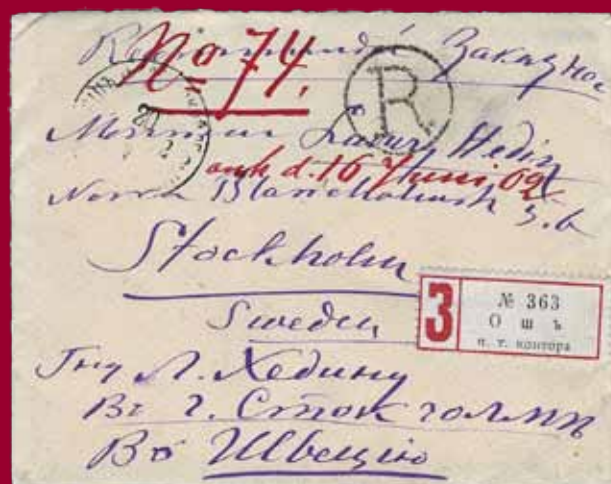 Recommandé Заказное
No 74.
R
Monsieur Hedin
ank d. 16 Juni 02
Norra Blasieholmsh 5. b
Stockholm
Sweden
З
№ 363
Ошъ
п. т. контора
Гну Л. Хедину
Въ г. Стокголмъ
Въ Швецію